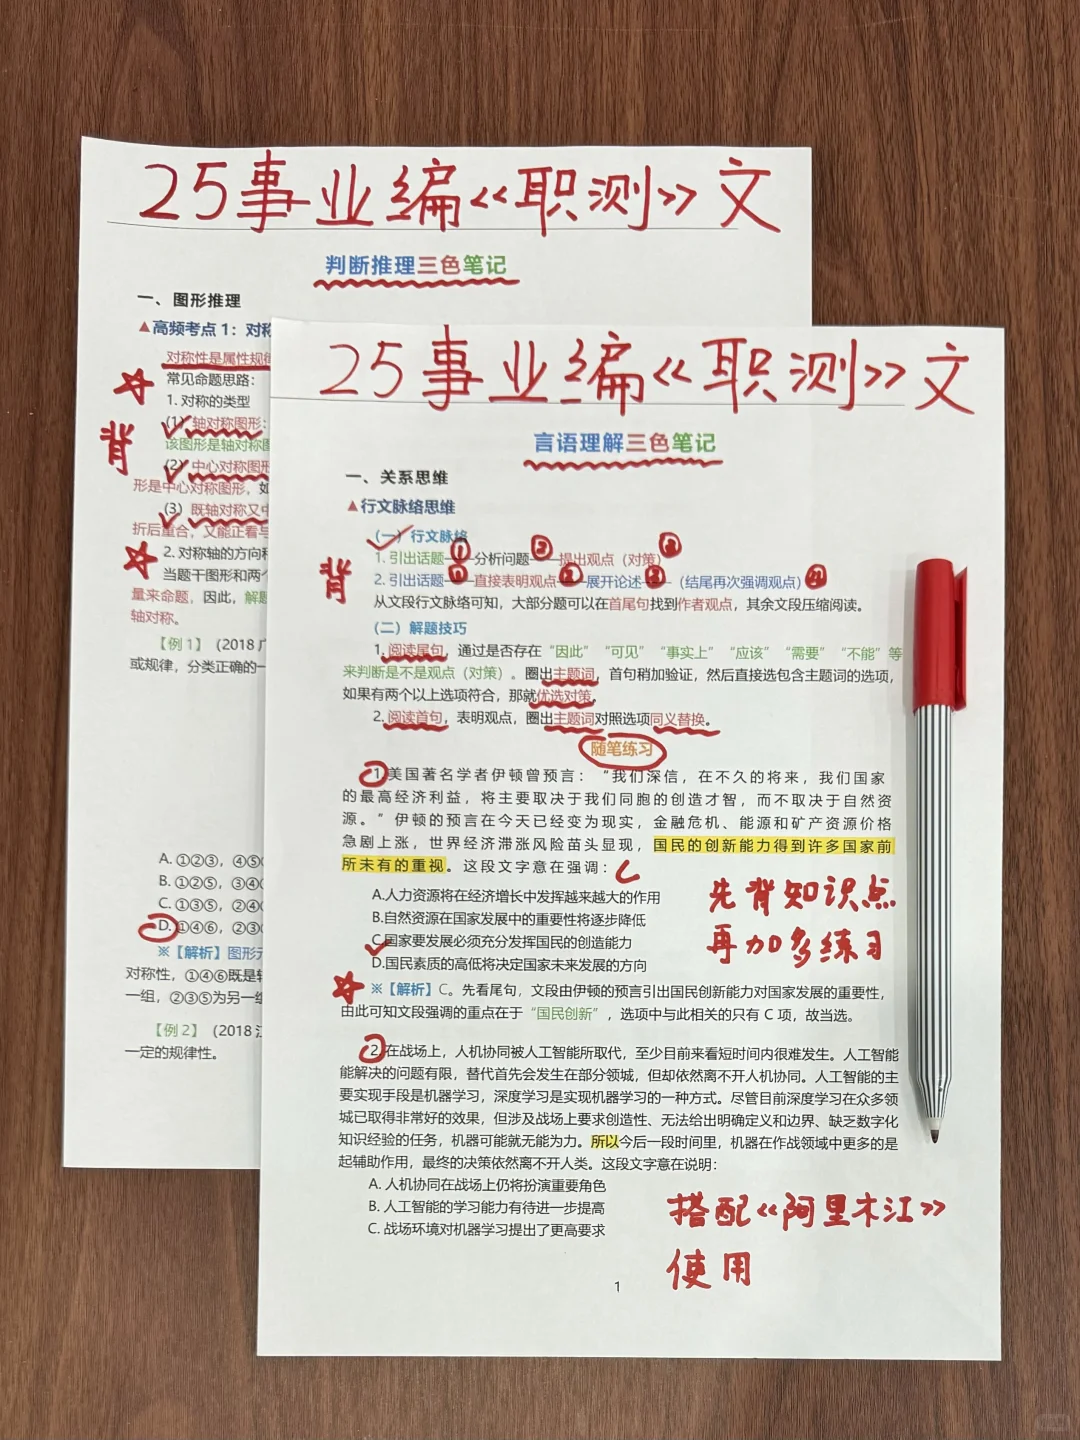 25事业编《职测》文
判断推理三色笔记
一、图形推理
▲高频考点1：对称
对称性是属性规律
常见命题思路：
1. 对称的类型
背
(1) 轴对称图形：
该图形是轴对称图
(2) 中心对称图形
形是中心对称图形，如
(3) 既轴对称又中
折后重合，又能正看与
2. 对称轴的方向和
当题干图形和两个
量来命题，因此，解题
轴对称。
【例1】（2018 广
或规律，分类正确的一
A. ①②③，④⑤
B. ①②⑤，③④
C. ①③⑤，②④
D. ①④⑥，②③
※【解析】图形元
对称性，①④⑥既是轴
一组，②③⑤为另一组
【例2】（2018 江
一定的规律性。
25事业编《职测》文
言语理解三色笔记
一、关系思维
▲行文脉络思维
（一）行文脉络
1. 引出话题①分析问题②提出观点（对策）③
背
2. 引出话题①直接表明观点②展开论述③（结尾再次强调观点）④
从文段行文脉络可知，大部分题可以在首尾句找到作者观点，其余文段压缩阅读。
（二）解题技巧
1. 阅读尾句，通过是否存在“因此”“可见”“事实上”“应该”“需要”“不能”等
来判断是不是观点（对策）。圈出主题词，首句稍加验证，然后直接选包含主题词的选项，
如果有两个以上选项符合，那就优选对策。
2. 阅读首句，表明观点，圈出主题词对照选项同义替换。
随笔练习
1.美国著名学者伊顿曾预言：“我们深信，在不久的将来，我们国家
的最高经济利益，将主要取决于我们同胞的创造才智，而不取决于自然资
源。”伊顿的预言在今天已经变为现实，金融危机、能源和矿产资源价格
急剧上涨，世界经济滞涨风险苗头显现，国民的创新能力得到许多国家前
所未有的重视。这段文字意在强调：C
A.人力资源将在经济增长中发挥越来越大的作用
B.自然资源在国家发展中的重要性将逐步降低
C.国家要发展必须充分发挥国民的创造能力
D.国民素质的高低将决定国家未来发展的方向
先背知识点
再加多练习
※【解析】C。先看尾句，文段由伊顿的预言引出国民创新能力对国家发展的重要性，
由此可知文段强调的重点在于“国民创新”，选项中与此相关的只有 C 项，故当选。
2.在战场上，人机协同被人工智能所取代，至少目前来看短时间内很难发生。人工智能
能解决的问题有限，替代首先会发生在部分领域，但却依然离不开人机协同。人工智能的主
要实现手段是机器学习，深度学习是实现机器学习的一种方式。尽管目前深度学习在众多领
域已取得非常好的效果，但涉及战场上要求创造性、无法给出明确定义和边界、缺乏数字化
知识经验的任务，机器可能就无能为力。所以今后一段时间里，机器在作战领域中更多的是
起辅助作用，最终的决策依然离不开人类。这段文字意在说明：
A. 人机协同在战场上仍将扮演重要角色
B. 人工智能的学习能力有待进一步提高
C. 战场环境对机器学习提出了更高要求
搭配《阿里木江》
使用
1